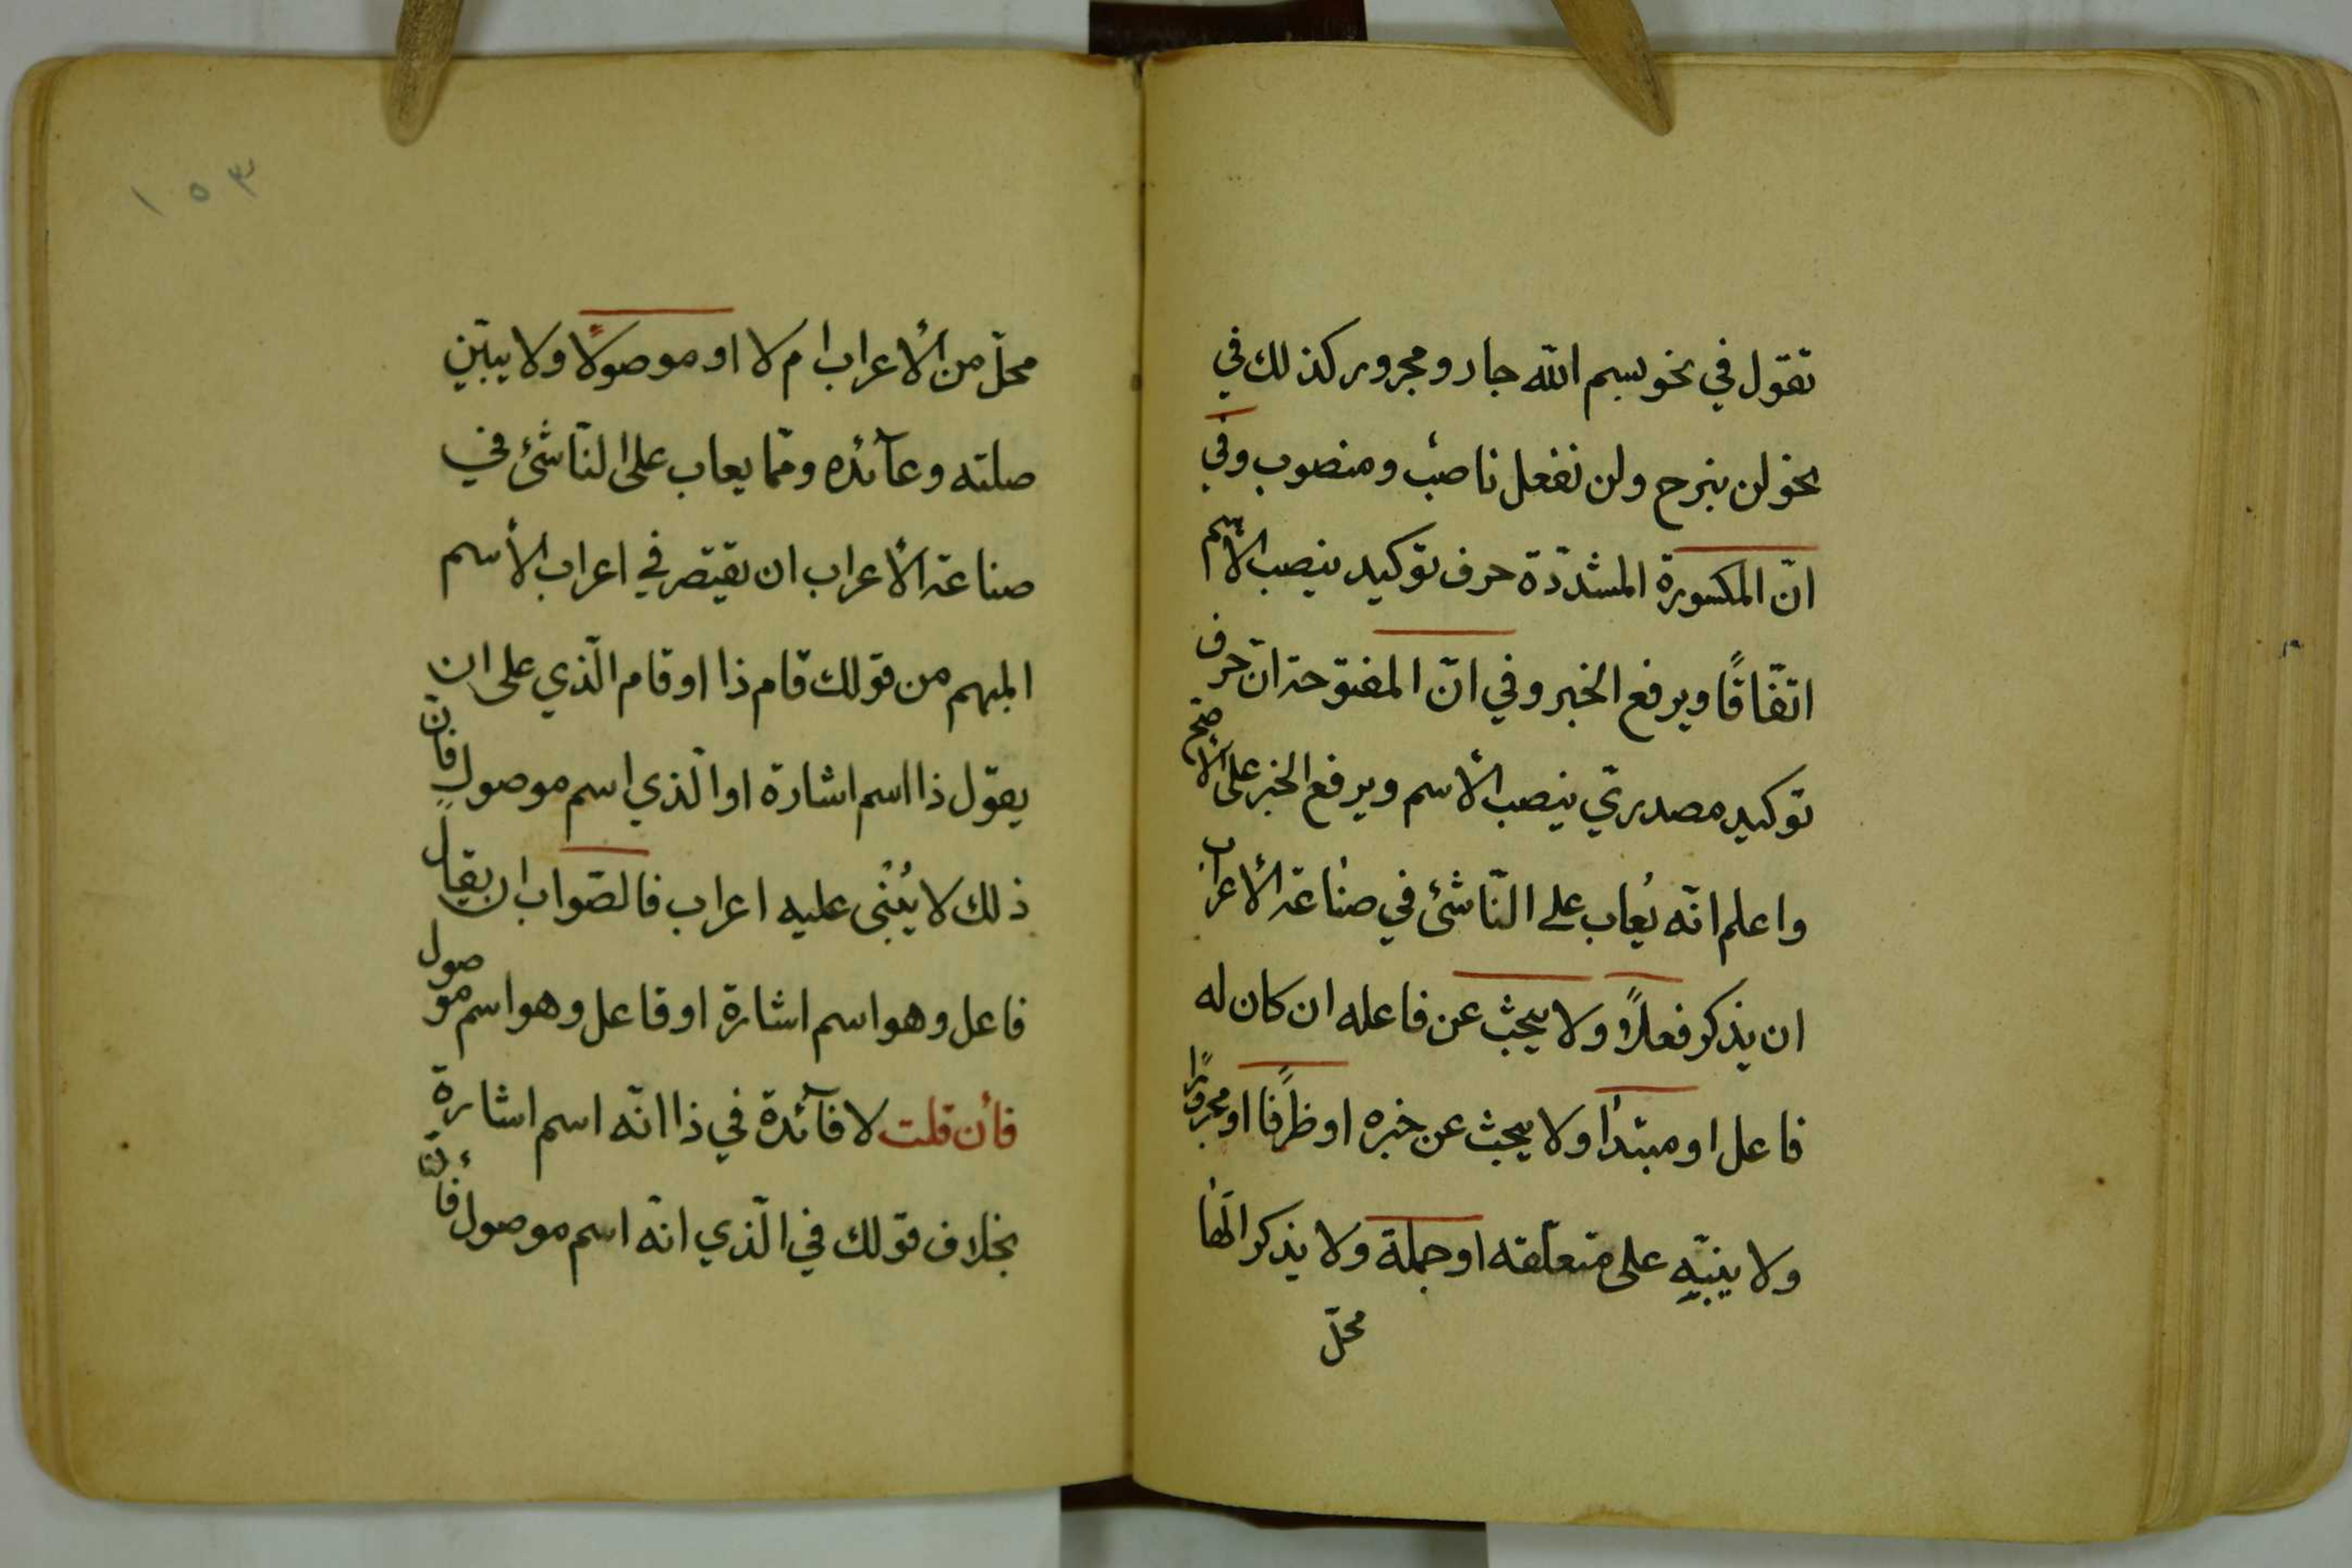 تقول في نحو بسم الله جار ومجرور كذلك في
نحو لن نبرح ولن نفعل ناصب ومنصوب وفي
انّ المكسورة المشدّدة حرف توكيد ينصب الأسم
اتّفاقًا ويرفع الخبر وفي انّ المفتوحة انّ حرف
توكيد مصدريّ ينصب الأسم ويرفع الخبر على الأصحّ
واعلم انّه يُعاب على النّاشئ في صناعة الأعراب
ان يذكر فعلاً ولا يبحث عن فاعله ان كان له
فاعل او مبتدأ ولا يبحث عن خبره او ظرفًا او مجرورًا
ولا ينبّه على متعلّقه او جملة ولا يذكر الها
محلّ
١٥٣
محلّ من الأعراب ام لا او موصولًا ولا يبيّن
صلته وعآئده وممّا يعاب على النّاشئ في
صناعة الأعراب ان يقتصر في اعراب الأسم
المبهم من قولك قام ذا او قام الّذي على ان
يقول ذا اسم اشارة او الّذي اسم موصول فانّ
ذلك لا يُبْنى عليه اعراب فالصّواب ان يقال
فاعل وهو اسم اشارة او فاعل وهو اسم موصول
فأن قلت لا فآئدة في ذا انّه اسم اشارة
بخلاف قولك في الّذي انّه اسم موصول فأنّ